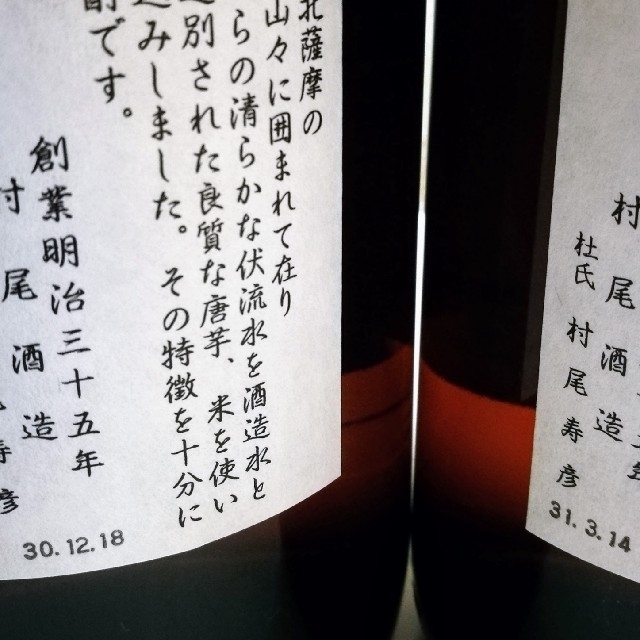 北薩摩の
山々に囲まれて在り
らの清らかな伏流水を酒造水と
別された良質な唐芋、米を使い
込みしました。その特徴を十分に
酎です。
創業明治三十五年
村尾酒造
寿彦
30.12.18
村尾酒造
杜氏 村尾寿彦
31.3.14